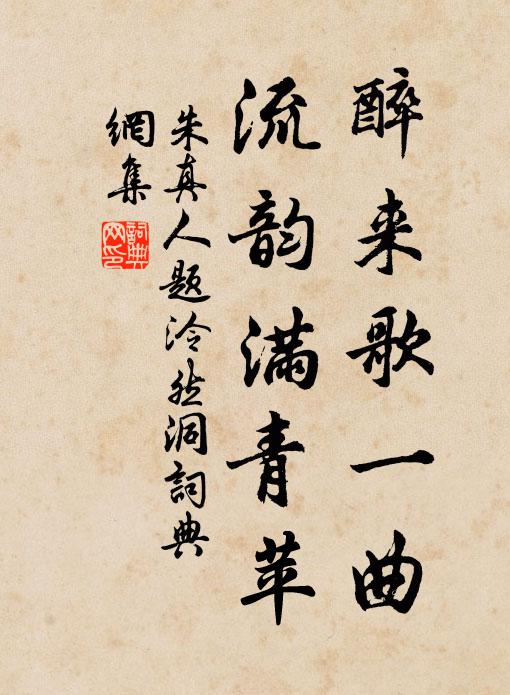 醉来歌一曲
流韵满青苹
朱真人题泠然洞詞典
網集
詞典网印